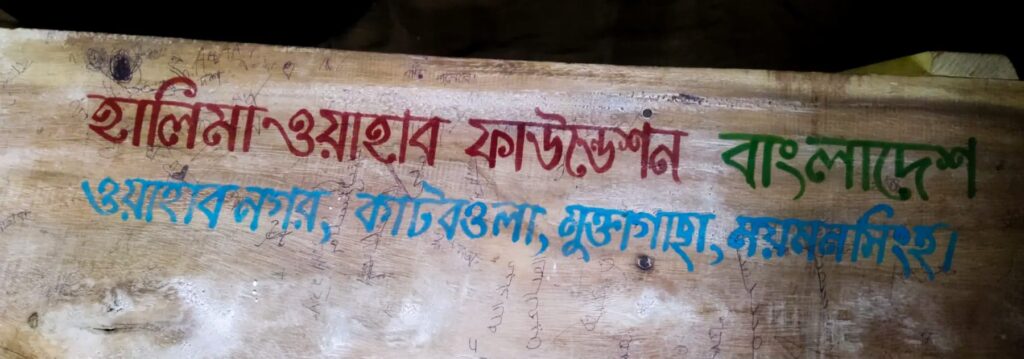 হালিমা ওয়াহাব ফাউন্ডেশন বাংলাদেশ
ওয়াহাব নগর, কাটবওলা, মুক্তাগাছা, ময়মনসিংহ।